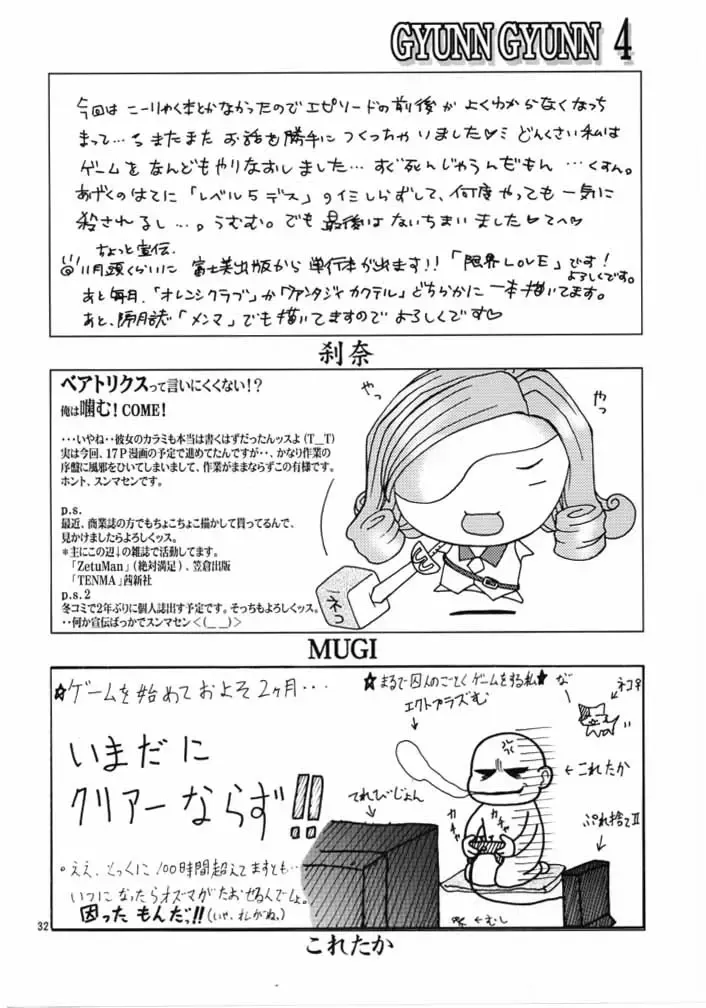 GYUNN GYUNN 4
今回はこーりゃく本とかなかったのでエピソードの前後がよくわからなくなっち
まって…、またまたお話を勝手につくっちゃいました♡ミどんくさい私は
ゲームをなんどもやりなおしました…すぐ死んじゃうんだもん…くすん。
あげくのはてに「レベル5デス」のイミしらずして、何度やっても一気に
殺されるし…。うむむ。でも最後はないちまいました♡てへ♡
ちょっと宣伝、
◎11月頭くらいに富士美出版から単行本が出ます!!「限界LOVE」です!
よろしくです。
あと毎月、「オレンジクラブ」か「ファンタジィカクテル」どちらかに一本描いてます。
あと、隔月誌「メンマ」でも描いてますのでよろしくです♡
刹奈
ベアトリクスって言いにくくない!?
俺は噛む!COME!
・・・いやね・・彼女のカラミも本当は書くはずだったんッスよ(T_T)
実は今回、17P漫画の予定で進めてたんですが・・、かなり作業の
序盤に風邪をひいてしまいまして、作業がままならずこの有様です。
ホント、スンマセンです。
p.s.
最近、商業誌の方でもちょこちょこ描かして貰ってるんで、
見かけましたらよろしくッス。
*主にこの辺↓の雑誌で活動してます。
「ZetuMan」(絶対満足)、笠倉出版
「TENMA」茜新社
p.s.2
冬コミで2年ぶりに個人誌出す予定です。そっちもよろしくッス。
・・何か宣伝ばっかでスンマセン<(_ _)>
やっ
やっ
ネコ
MUGI
☆ゲームを始めておよそ2ヶ月・・・
いまだに
クリアーならず!!
。ええ、とっくに100時間超えてますとも…
いつになったらオズマがたおせるんでしょ。
困ったもんだっ!!(いや、オレがね。)
★まるで囚人のごとくゲームをする私★
エクトプラズむ
な゛
ネコ♀
←これたか
てれびじょん
カチャ
カチャ
ぷれ捨てⅡ
←むし
32
これたか